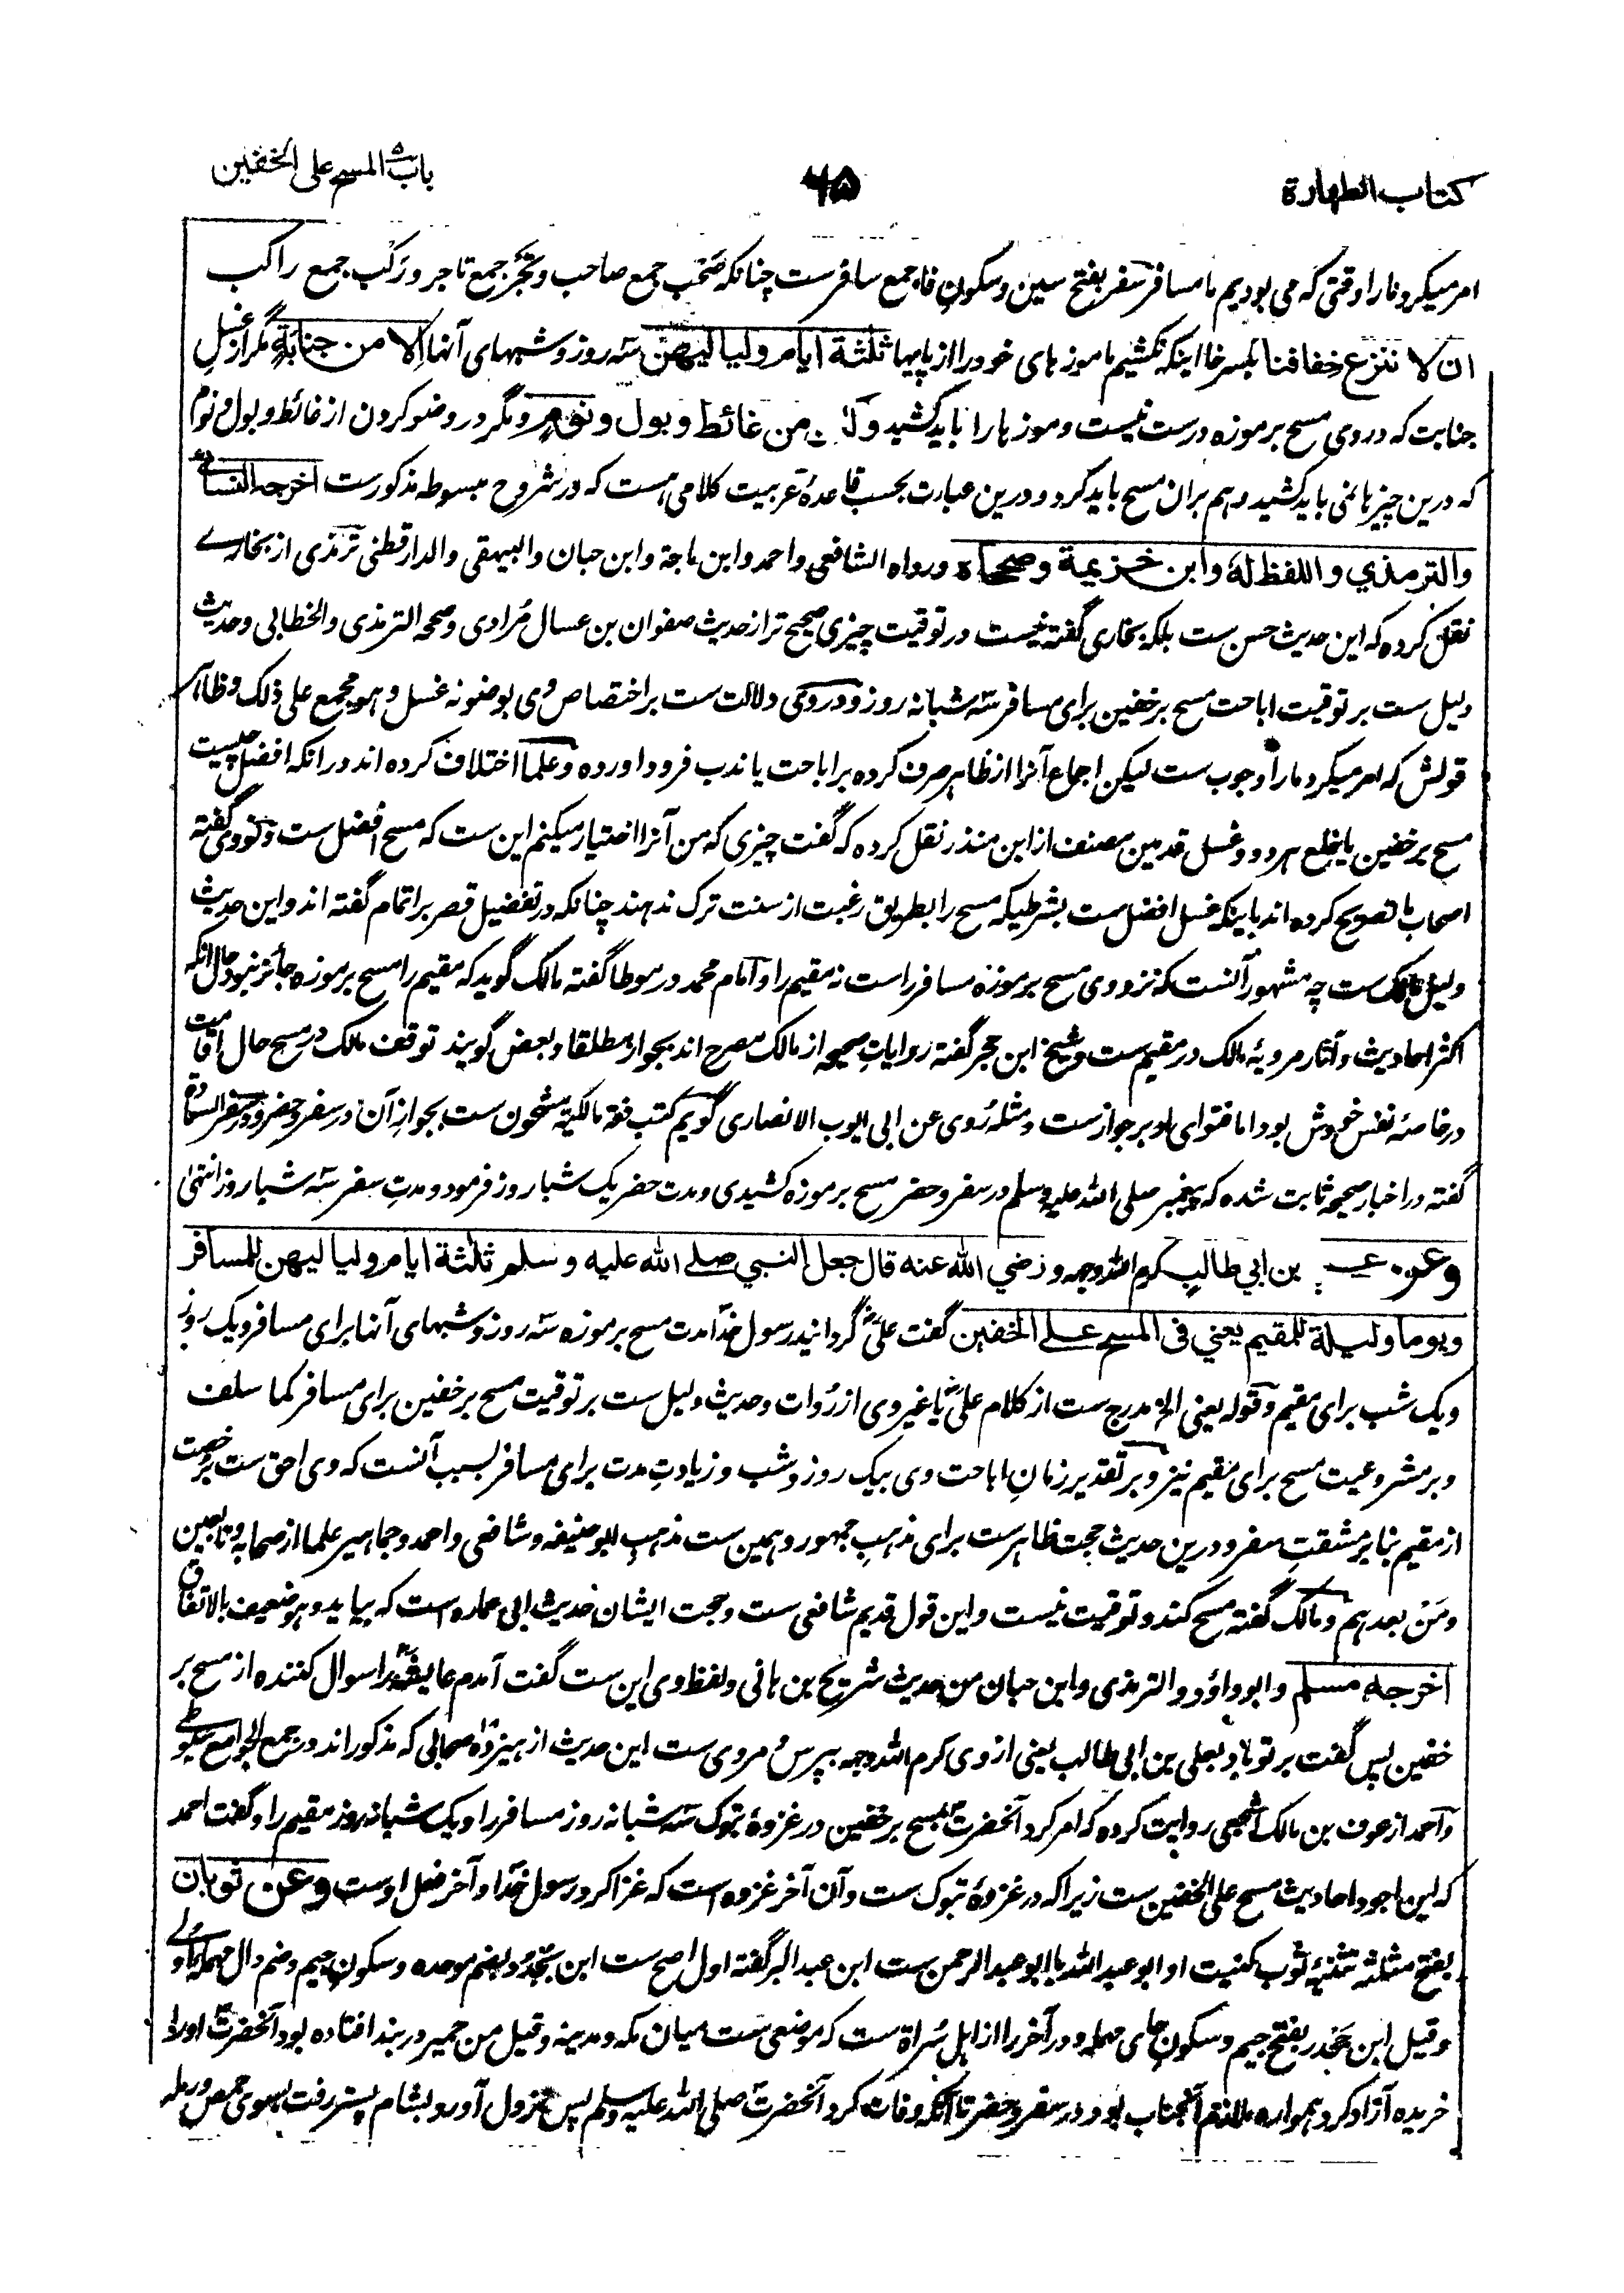 کتاب الطهارة ۶۵ باب المسح علی الخفین
امر میکرد ما را وقتی که می بودیم ما مسافر سفر بفتح سین و سکون فا جمع سافر ست چنانکه صَحْب جمع صاحب و تَجْر جمع تاجر و رَکْب جمع راکب
ان لا ننزع خفافنا بکسر خا اینکه نکشیم ما موزہ های خود را از پایها ثلثة ایام ولیالیهن سه روز و شبهای آنها الا من جنابة مگر از غسلِ
جنابت که در وی مسح بر موزه درست نیست و موزہا را باید کشید من غائط وبول ونوم و مگر در وضو کردن از غائط و بول و نوم
که درین چیزہا نمی باید کشید و ہم بران مسح باید کرد و درین عبارت بحسب قاعدۂ عربیت کلامی ہست که در شروح مبسوطه مذکورست اخرجه النسائے
والترمذي واللفظ له وابن خزیمة وصححاه ورواه الشافعی و احمد وابن ماجة وابن حبان والبیهقی والدارقطنی ترمذی از بخارے
نقل کرده که این حدیث حسن ست بلکه بخاری گفته نیست در توقیت چیزی صحیح تر از حدیث صفوان بن عسال مُرادی و صححه الترمذی والخطابی و حدیث
دلیل ست بر توقیت اباحت مسح بر خفین برای مسافر سه شبانه روز و در وی دلالت ست بر اختصاص وی بوضو نه غسل و ہو مجمع علی ذلک و ظاہر
قولش که امر میکرد ما را وجوب ست لیکن اجماع آنرا از ظاہر صرف کرده بر اباحت یا ندب فرود آورده و علما اختلاف کرده اند در انکه افضل چیست
مسح بر خفین یا خلع ہر دو و غسل قدمین مصنف از ابن منذر نقل کرده که گفت چیزی که من آنرا اختیار میکنم این ست که مسح افضل ست و نووی گفته
اصحاب ما تصریح کرده اند باینکه غسل افضل ست بشرطیکه مسح را بطریق رغبت از سنت ترک ندہند چنانکه در تفضیل قصر بر اتمام گفته اند و این حدیث
دلیل مالک ست چه مشهور آنست که نزد وی مسح بر موزه مسافر راست نه مقیم را و امام محمد در موطا گفته مالک گوید که مقیم را مسح بر موزه جائز نبود حال آنکه
اکثر احادیث و آثار مرویهٔ مالک در مقیم ست و شیخ ابن حجر گفته روایاتِ صحیحه از مالک مصرح اند بجواز مطلقا و بعض گویند توقف مالک در مسح حال اقامت
در خاصهٔ نفس خودش بود اما فتوای او بر جواز ست و مثله رُوی عن ابی ایوب الانصاری گویم کتب فقه مالکیه مشحون ست بجواز آن در سفر و حضر و در سفر السعادة
گفته در اخبار صحیحه ثابت شده که پیغمبر صلی الله علیه وسلم در سفر و حضر مسح بر موزه کشیدی و مدت حضر یک شبا روز فرمود و مدتِ سفر سه شبا روز انتهیٰ
بن ابي طالب کرم الله وجهه ورضي الله عنه قال جعل النبي صلے الله علیه وسلم ثلثة ایام ولیالیهن للمسافر
ویوما ولیلة للمقیم یعني فی المسح علے الخفین گفت علی گردانید رسول خدا مدت مسح بر موزه سه روز و شبهای آنها برای مسافر و یک روز
و یک شب برای مقیم و قوله یعنی الخ مدرج ست از کلام علی یا غیر وی از رُوات و حدیث دلیل ست بر توقیت مسح بر خفین برای مسافر کما سلف
و بر مشروعیت مسح برای مقیم نیز و بر تقدیر زمانِ اباحت وی بیک روز و شب و زیادتِ مدت برای مسافر بسبب آنست که وی احق ست بر خصت
از مقیم بنا بر مشقتِ سفر و درین حدیث حجت ظاہرست برای مذہبِ جمہور و ہمین ست مذہب ابو حنیفه و شافعی و احمد و جماہیر علما از صحابه و تابعین
ومَن بعدہم و مالک گفته مسح کند و توقیت نیست و این قول قدیم شافعی ست و حجت ایشان حدیث ابی عماره است که بیاید و ہو ضعیف بالاتفاق
اخرجه مسلم وابو داؤد والترمذی وابن حبان من حدیث شریح بن ہانی و لفظ وی این ست گفت آمدم عایشه را سوال کننده از مسح بر
خفین پس گفت بر تو باد بعلی بن ابی طالب یعنی از وی کرم الله وجهه بپرس مروی ست این حدیث از ہیزدہ صحابی که مذکور اند در جمع الجوامع سیوطی
و احمد از عوف بن مالک اشجعی روایت کرده که امر کرد آنحضرت بمسح بر خفین در غزوۂ تبوک سه شبانه روز مسافر را و یک شبانه روز مقیم را و گفت احمد
که این اجود احادیث مسح علی الخفین ست زیرا که در غزوۂ تبوک ست و آن آخر غزوه است که غزا کرد رسول خدا و آخر فعل اوست وعن ثوبان
بفتح مثلثه تثنیهٔ ثوب کنیت او ابو عبد الله یا ابو عبد الرحمن ست ابن عبد البر گفته اول اصح ست ابن بُجْدُد بضم موحده و سکون جیم و ضم دال مهملهٔ
و قیل ابن جحدر بفتح جیم و سکونِ حای مهمله و در آخر را از اہل سُراة ست که موضعی ست میان مکه و مدینه و قیل من حمیر در بند افتاده بود آنحضرت او را
خریده آزاد کرد ہمواره ملازم آنجناب بود در سفر و حضر تا آنکه وفات کرد آنحضرت صلی الله علیه وسلم پس نزول آورد بشام پستر رفت بسوی حمص و رمله